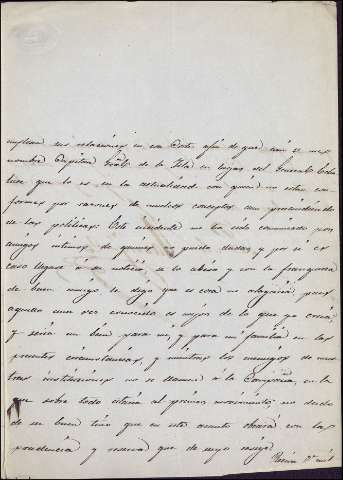 emplear sus relaciones en esa Corte afin de que aun se me
nombre Capitan Gral de la Isla en lugar del General
que lo es en la actualidad con quien no estan con-
formes por razones de muchos conceptos aun prescindiendo
de las politicas. Este incidente me ha sido comunicado por
amigos intimos de quienes no puedo dudar, y por si es
caso llegase á su noticia se lo aviso y con la franqueza
de buen amigo le digo que es cosa me alegraria pues
aquello una vez conocido es mejor de lo que yo creia,
y seria un bien para mi, y para mi familia en las
presentes circunstancias, y mientras los enemigos de nues-
tras instituciones no se llamen á la Campaña, en la
que sobre todo estaria al primer movimiento; no dudo
de su buen tino que en este asunto obrará con la
prudencia y reserva que de suyo exige.